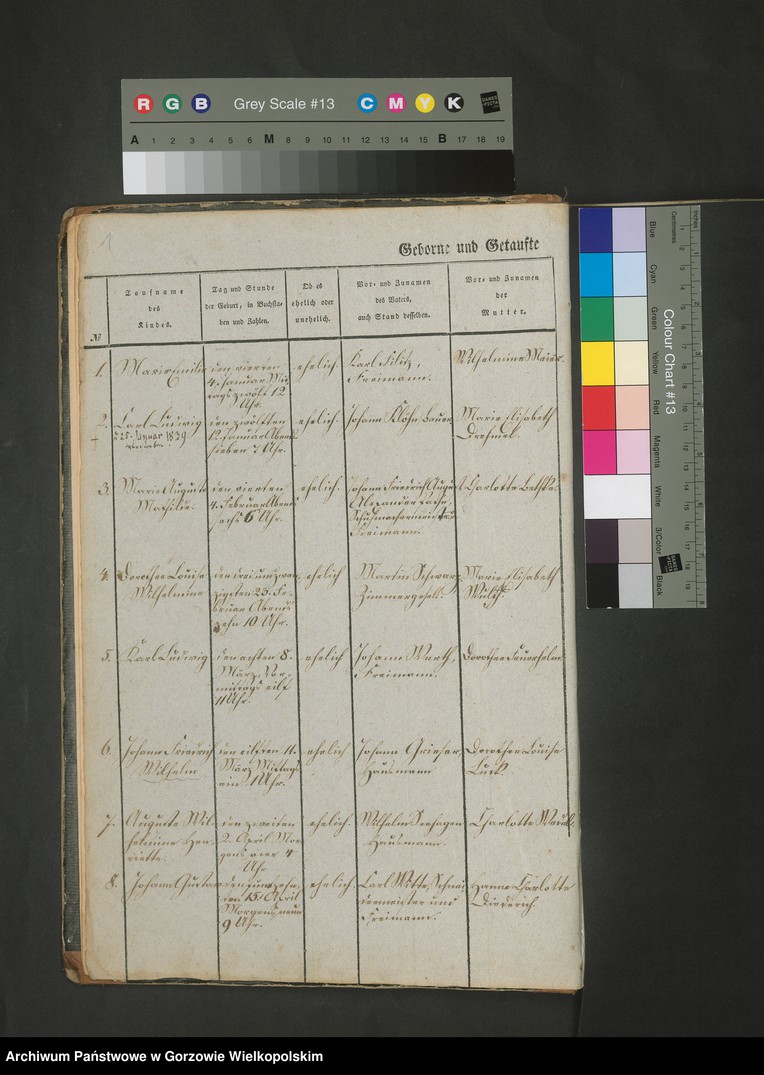 R G B Grey Scale #13 C M Y K
A 1 2 3 4 5 6 M 8 9 10 11 12 13 14 15 B 17 18 19
Inches
Centimetres
Colour Chart #13
Blue
Cyan
Green
Yellow
Red
Magenta
White
3/Color
Black
1
Geborne und Getaufte
№
Taufname
des
Kindes.
Tag und Stunde
der Geburt, in Buchsta-
ben und Zahlen.
Ob es
ehelich oder
unehelich.
Vor- und Zunamen
des Vaters,
auch Stand desselben.
Vor- und Zunamen
der
Mutter.
1.
den vierten
4. Januar Mit-
tags zwölf 12
Uhr.
ehelich.
Karl
Freimann.
Wilhelmine Meier.
2.
Carl Ludwig
25. Januar 1839
den zwölften
12. Januar Abends
sieben 7 Uhr.
ehelich.
Johann
Marie Elisabeth
3.
Marie Auguste
Mathilde.
den vierten
4. Februar Abends
sechs 6 Uhr.
ehelich.
Johann Friedrich August
Alexander
Schuhmachermeister
Freimann.
Charlotte
4.
Dorothee Louise
Wilhelmine
den dreiundzwan-
zigsten 23. Fe-
bruar Abends
zehn 10 Uhr.
ehelich
Martin Schwarz
Zimmergesell.
Marie Elisabeth
5.
Karl Ludwig
den achten 8.
März, Vor-
mittags eilf
11 Uhr.
ehelich
Johann Wurth,
Freimann.
Dorothee Feuerhelm
6.
Johann Friedrich
Wilhelm
den eilften 11.
März Mittags
ein 1 Uhr.
ehelich
Johann
Hausmann
Dorothee Louise
7.
Auguste Wil-
helmine Hen-
riette.
den zweiten
2. April Mor-
gens vier 4
Uhr
ehelich.
Wilhelm Seehagen
Hausmann.
Charlotte
8.
Johann Gustav
den funfzehn-
ten 15. April
Morgens neun
9 Uhr.
ehelich.
Carl Witte, Schnei-
dermeister und
Freimann.
Hanne Charlotte
Diederich.
Archiwum Państwowe w Gorzowie Wielkopolskim